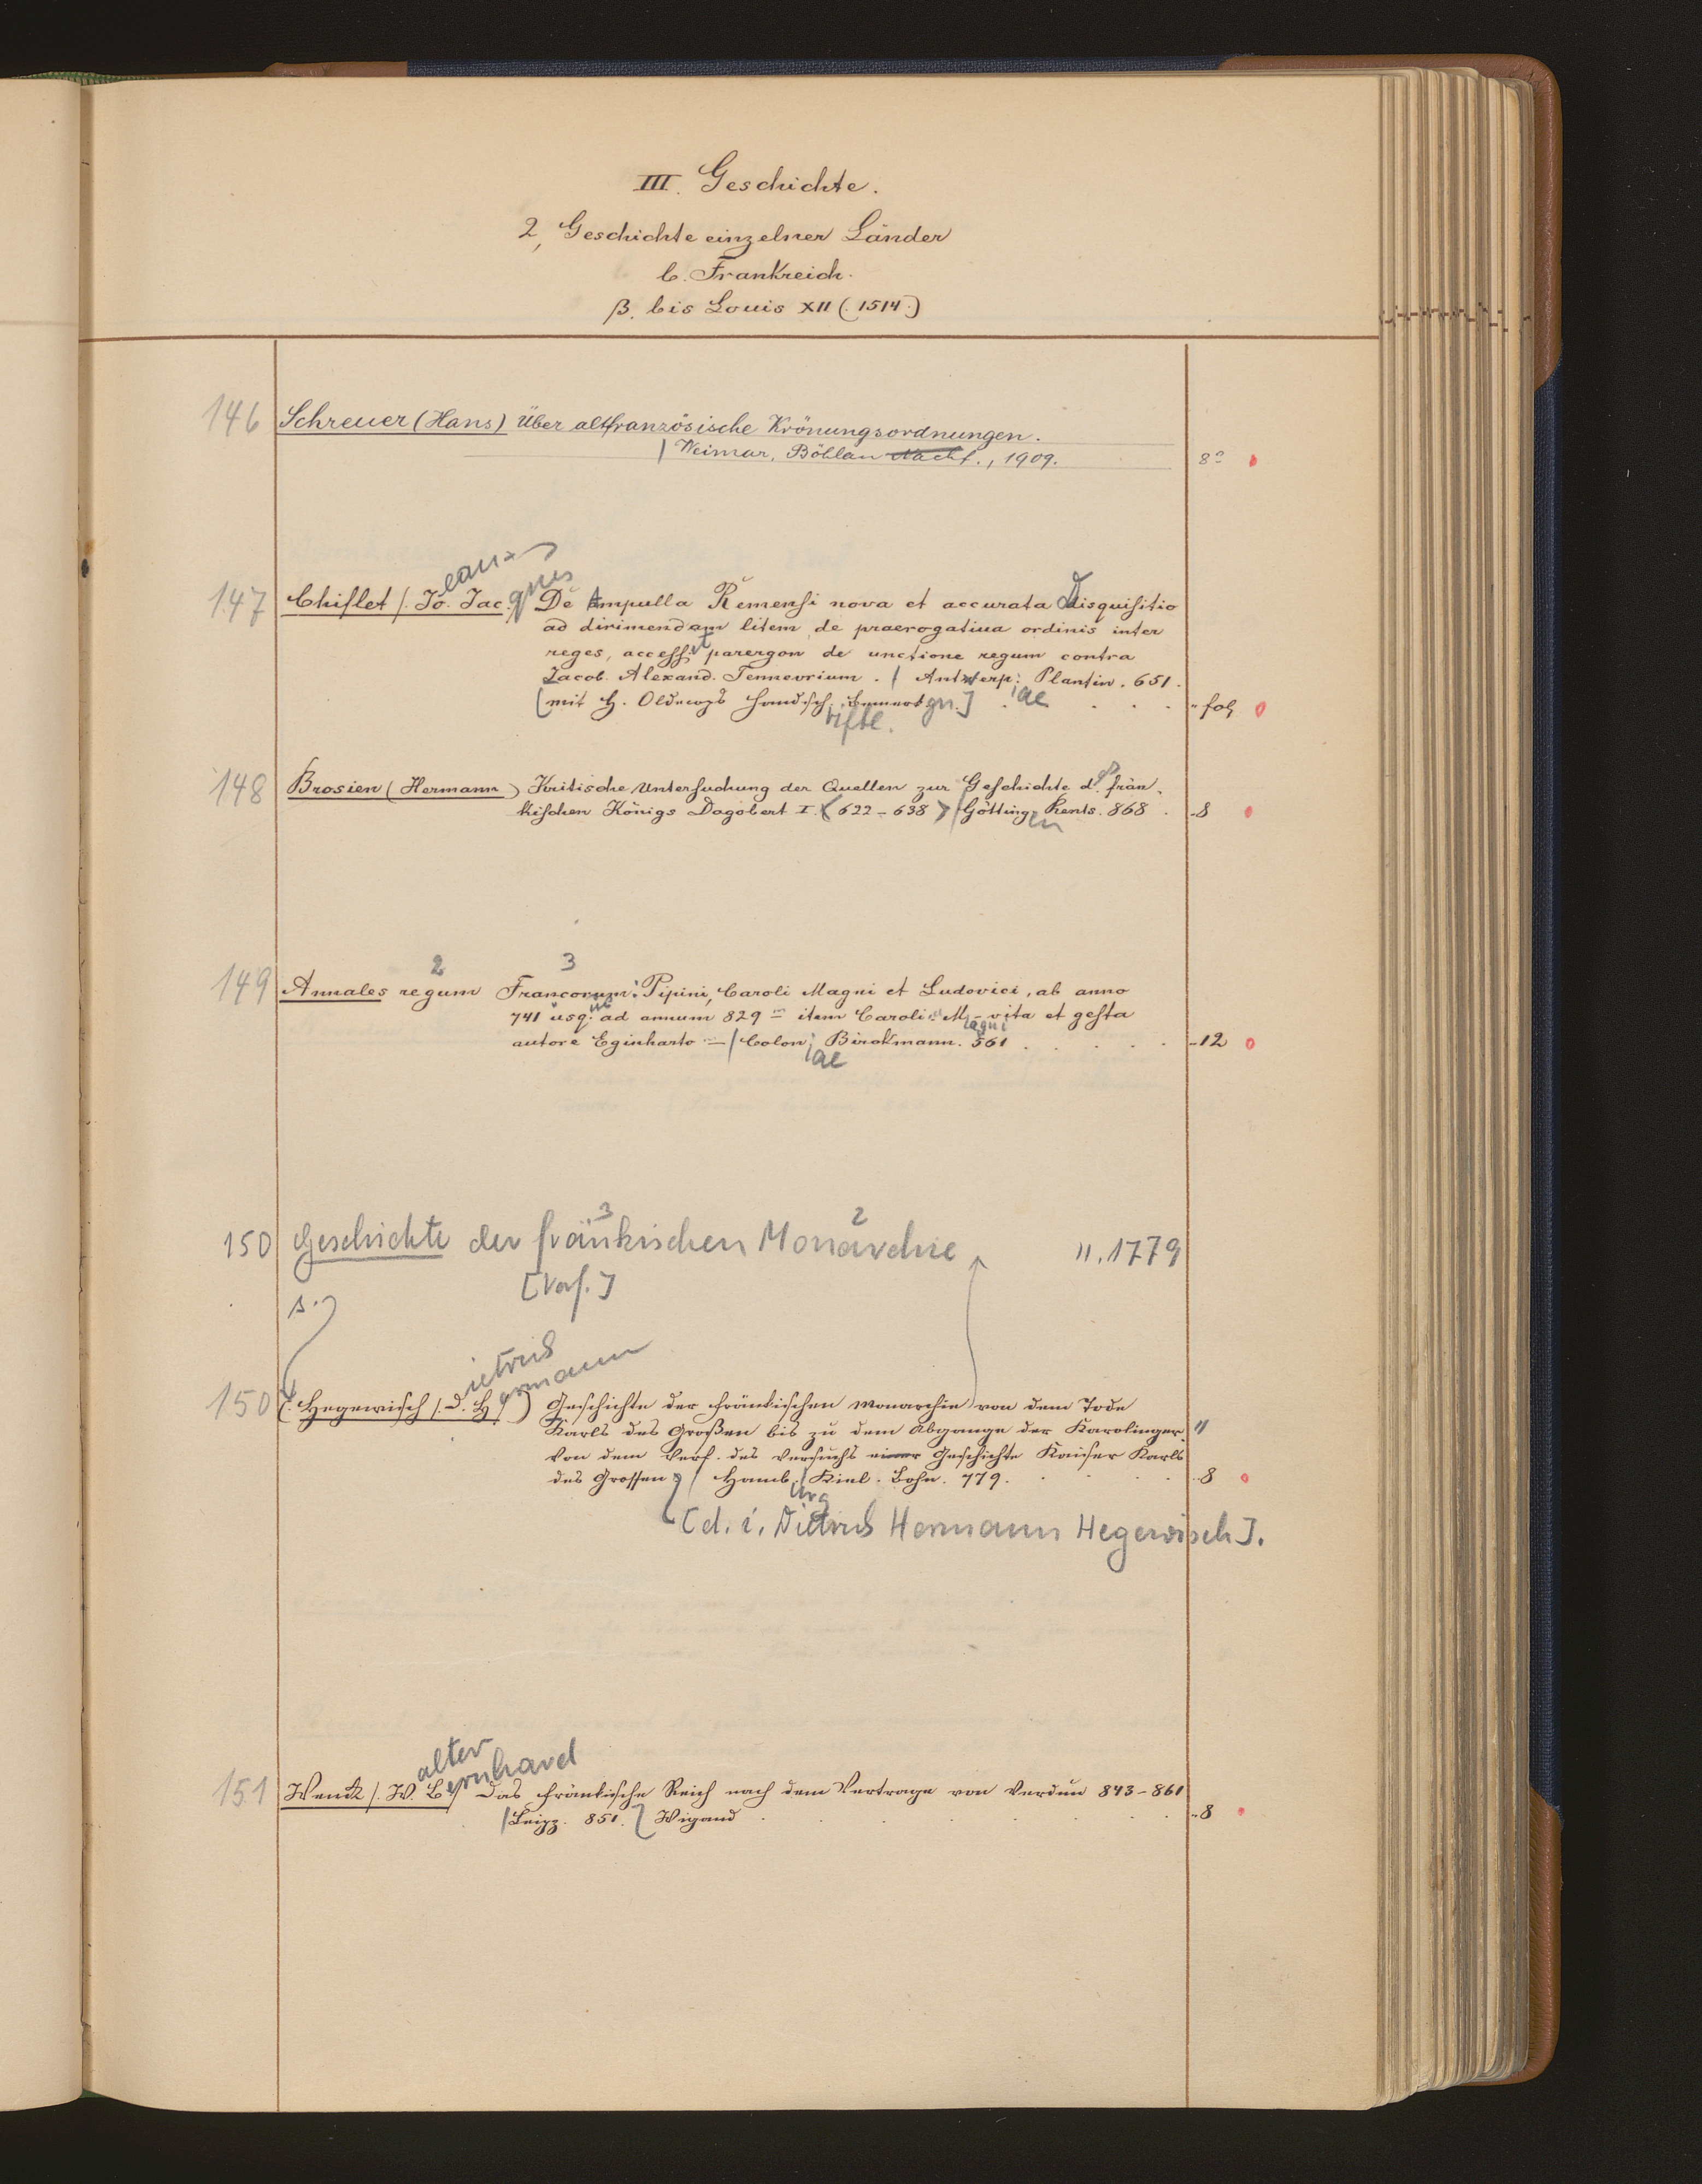 III. Geschichte.
2, Geschichte einzelner Länder
b. Frankreich.
β. bis Louis XII (1514.)
146 Schreuer (Hans) Über altfranzösische Krönungsordnungen.
/ Weimar, Böhlau Nachf., 1909. 8°
147 Chiflet (Jo.ean- Jac.ques) De Ampulla Remensi nova et accurata Disquisitio
ad dirimendam litem de praerogativa ordinis inter
reges, accessit parergon de unctione regum contra
Jacob. Alexand. Tennevrium. / Antverp:iae Plantin. 651.
[mit H. Oldecops handschriftl. Bemerkgn.] " fol
148 Brosien (Hermann) Kritische Untersuchung der Quellen zur Geschichte des frän-
kischen Königs Dagobert I. (622-638) / Göttingen Rente. 868. " 8
2 3
149 Annales regum Francorum: Pipini, Caroli Magni et Ludovici, ab anno
741 usq.ue ad annum 829 — item Caroli Magni vita et gesta
autore Eginharto — / Coloniae Birckmann. 561 " 12
3 2
150 Geschichte der fränkischen Monarchie 11.1779
[Verf.]
s.
150 (Hegewisch (D.ietrich H.ermann) Geschichte der fränkischen Monarchie von dem Tode
Karls des Großen bis zu dem Abgange der Karolinger "
von dem Verf. des Versuchs einer Geschichte Kaiser Karls
des Grossen / Hamburg / Kiel. Bohn. 779. " 8
[d. i. Dietrich Hermann Hegewisch].
151 Wenck (W.alter B.ernhard) Das fränkische Reich nach dem Vertrage von Verdun 843-861
/ Leipz. 851. Wigand " 8